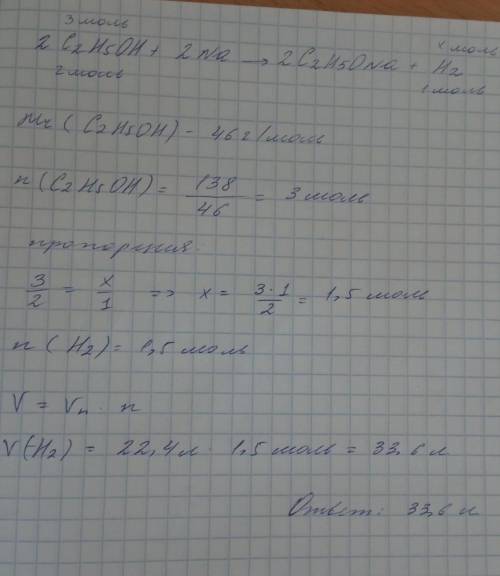 3 моль x моль
2 C2H5OH + 2 Na → 2 C2H5ONa + H2
2 моль 1 моль
Mr (C2H5OH) - 46 г/моль
n (C2H5OH) = 138/46 = 3 моль
пропорция.
3/2 = x/1 => x = 3·1/2 = 1,5 моль
n (H2) = 1,5 моль
V = Vn · n
V(H2) = 22,4 л · 1,5 моль = 33,6 л
Ответ: 33,6 л